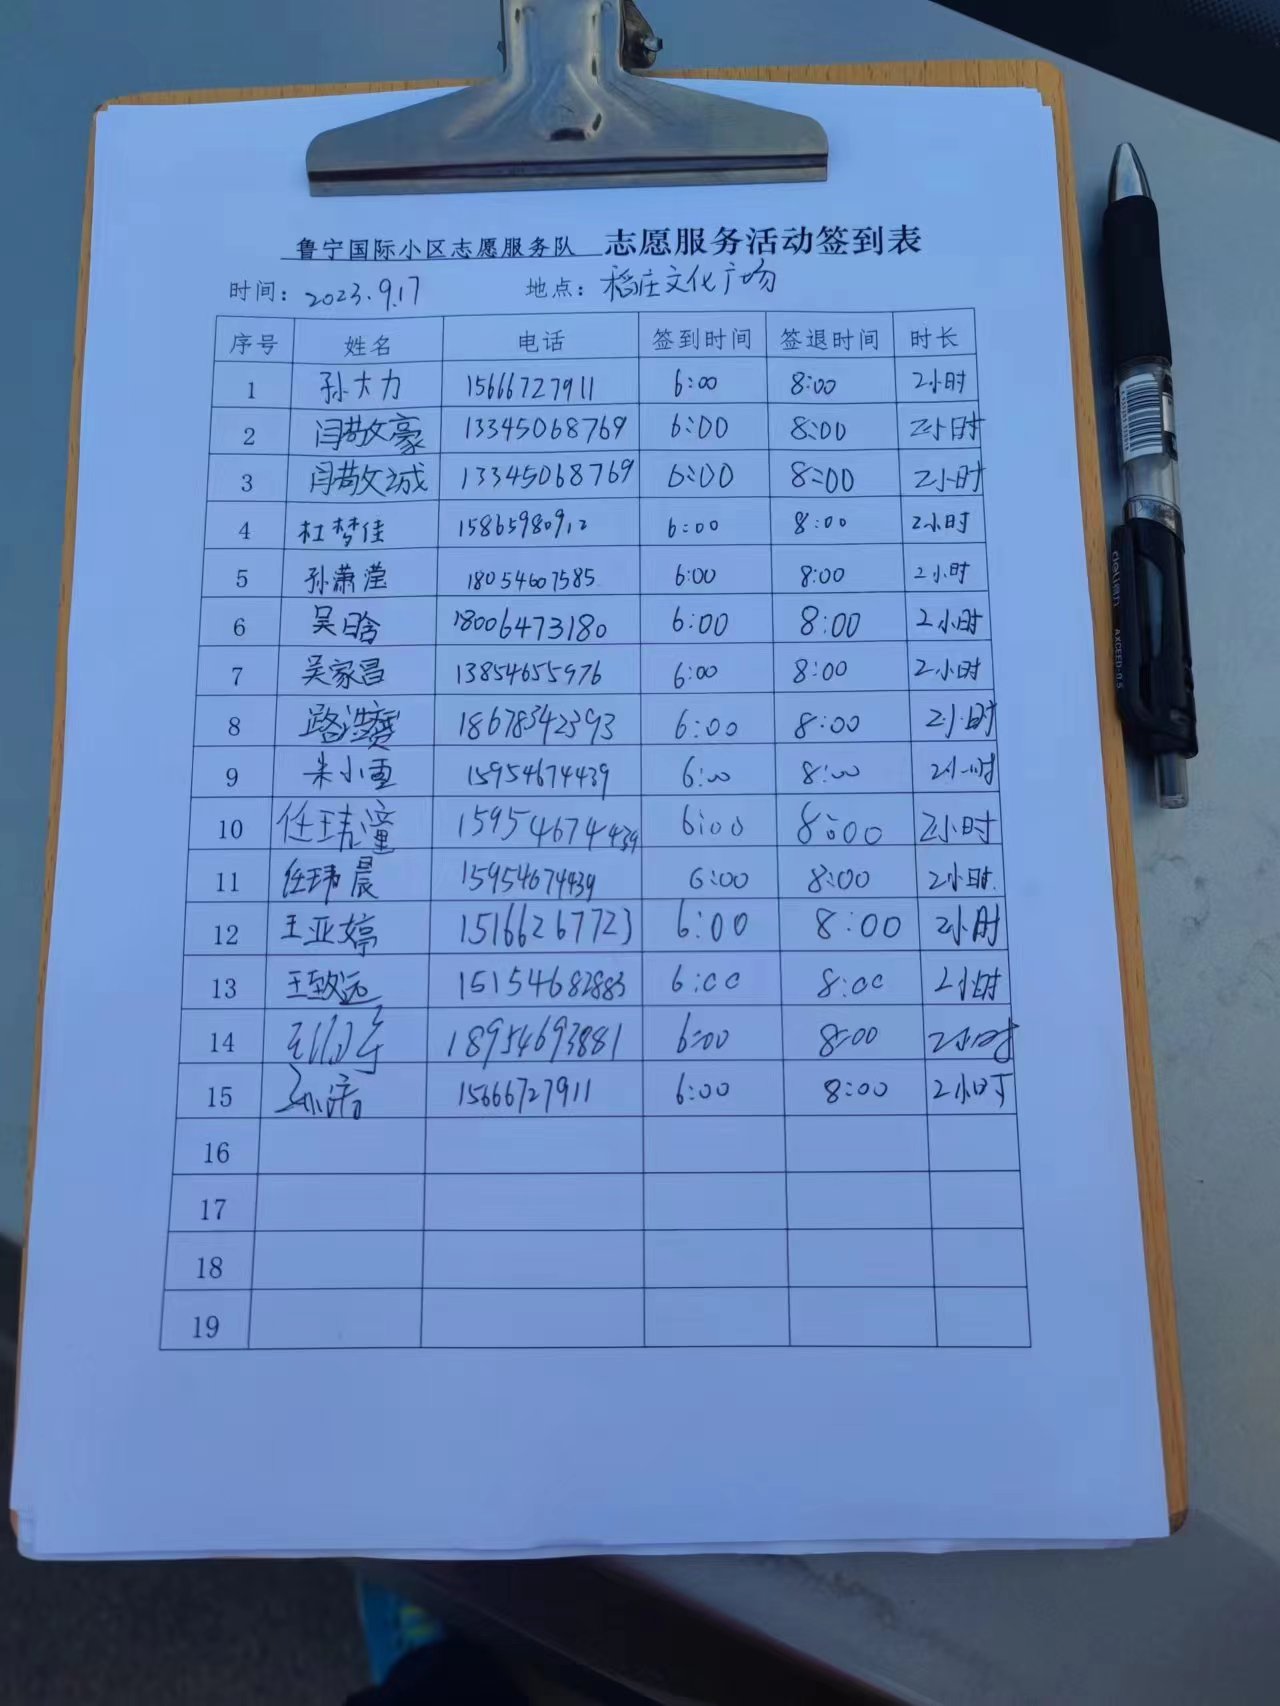 鲁宁国际小区志愿服务队 志愿服务活动签到表
时间：2023.9.17 地点：稻庄文化广场
序号 姓名 电话 签到时间 签退时间 时长
1 孙大力 15666727911 6:00 8:00 2小时
2 闫敬文豪 13345068769 6:00 8:00 2小时
3 闫敬文诚 13345068769 6:00 8:00 2小时
4 杜梦佳 15865980912 6:00 8:00 2小时
5 孙萧滢 18054607585 6:00 8:00 2小时
6 吴日含 18006473180 6:00 8:00 2小时
7 吴家昌 13854655976 6:00 8:00 2小时
8 18678342393 6:00 8:00 2小时
9 朱小雪 15954674439 6:00 8:00 2小时
10 任玮潼 15954674439 6:00 8:00 2小时
11 任玮晨 15954674439 6:00 8:00 2小时
12 王亚婷 15166267723 6:00 8:00 2小时
13 王致远 15154682883 6:00 8:00 2小时
14 18954693881 6:00 8:00 2小时
15 15666727911 6:00 8:00 2小时
16
17
18
19
deli得力 AXCEED-0.5